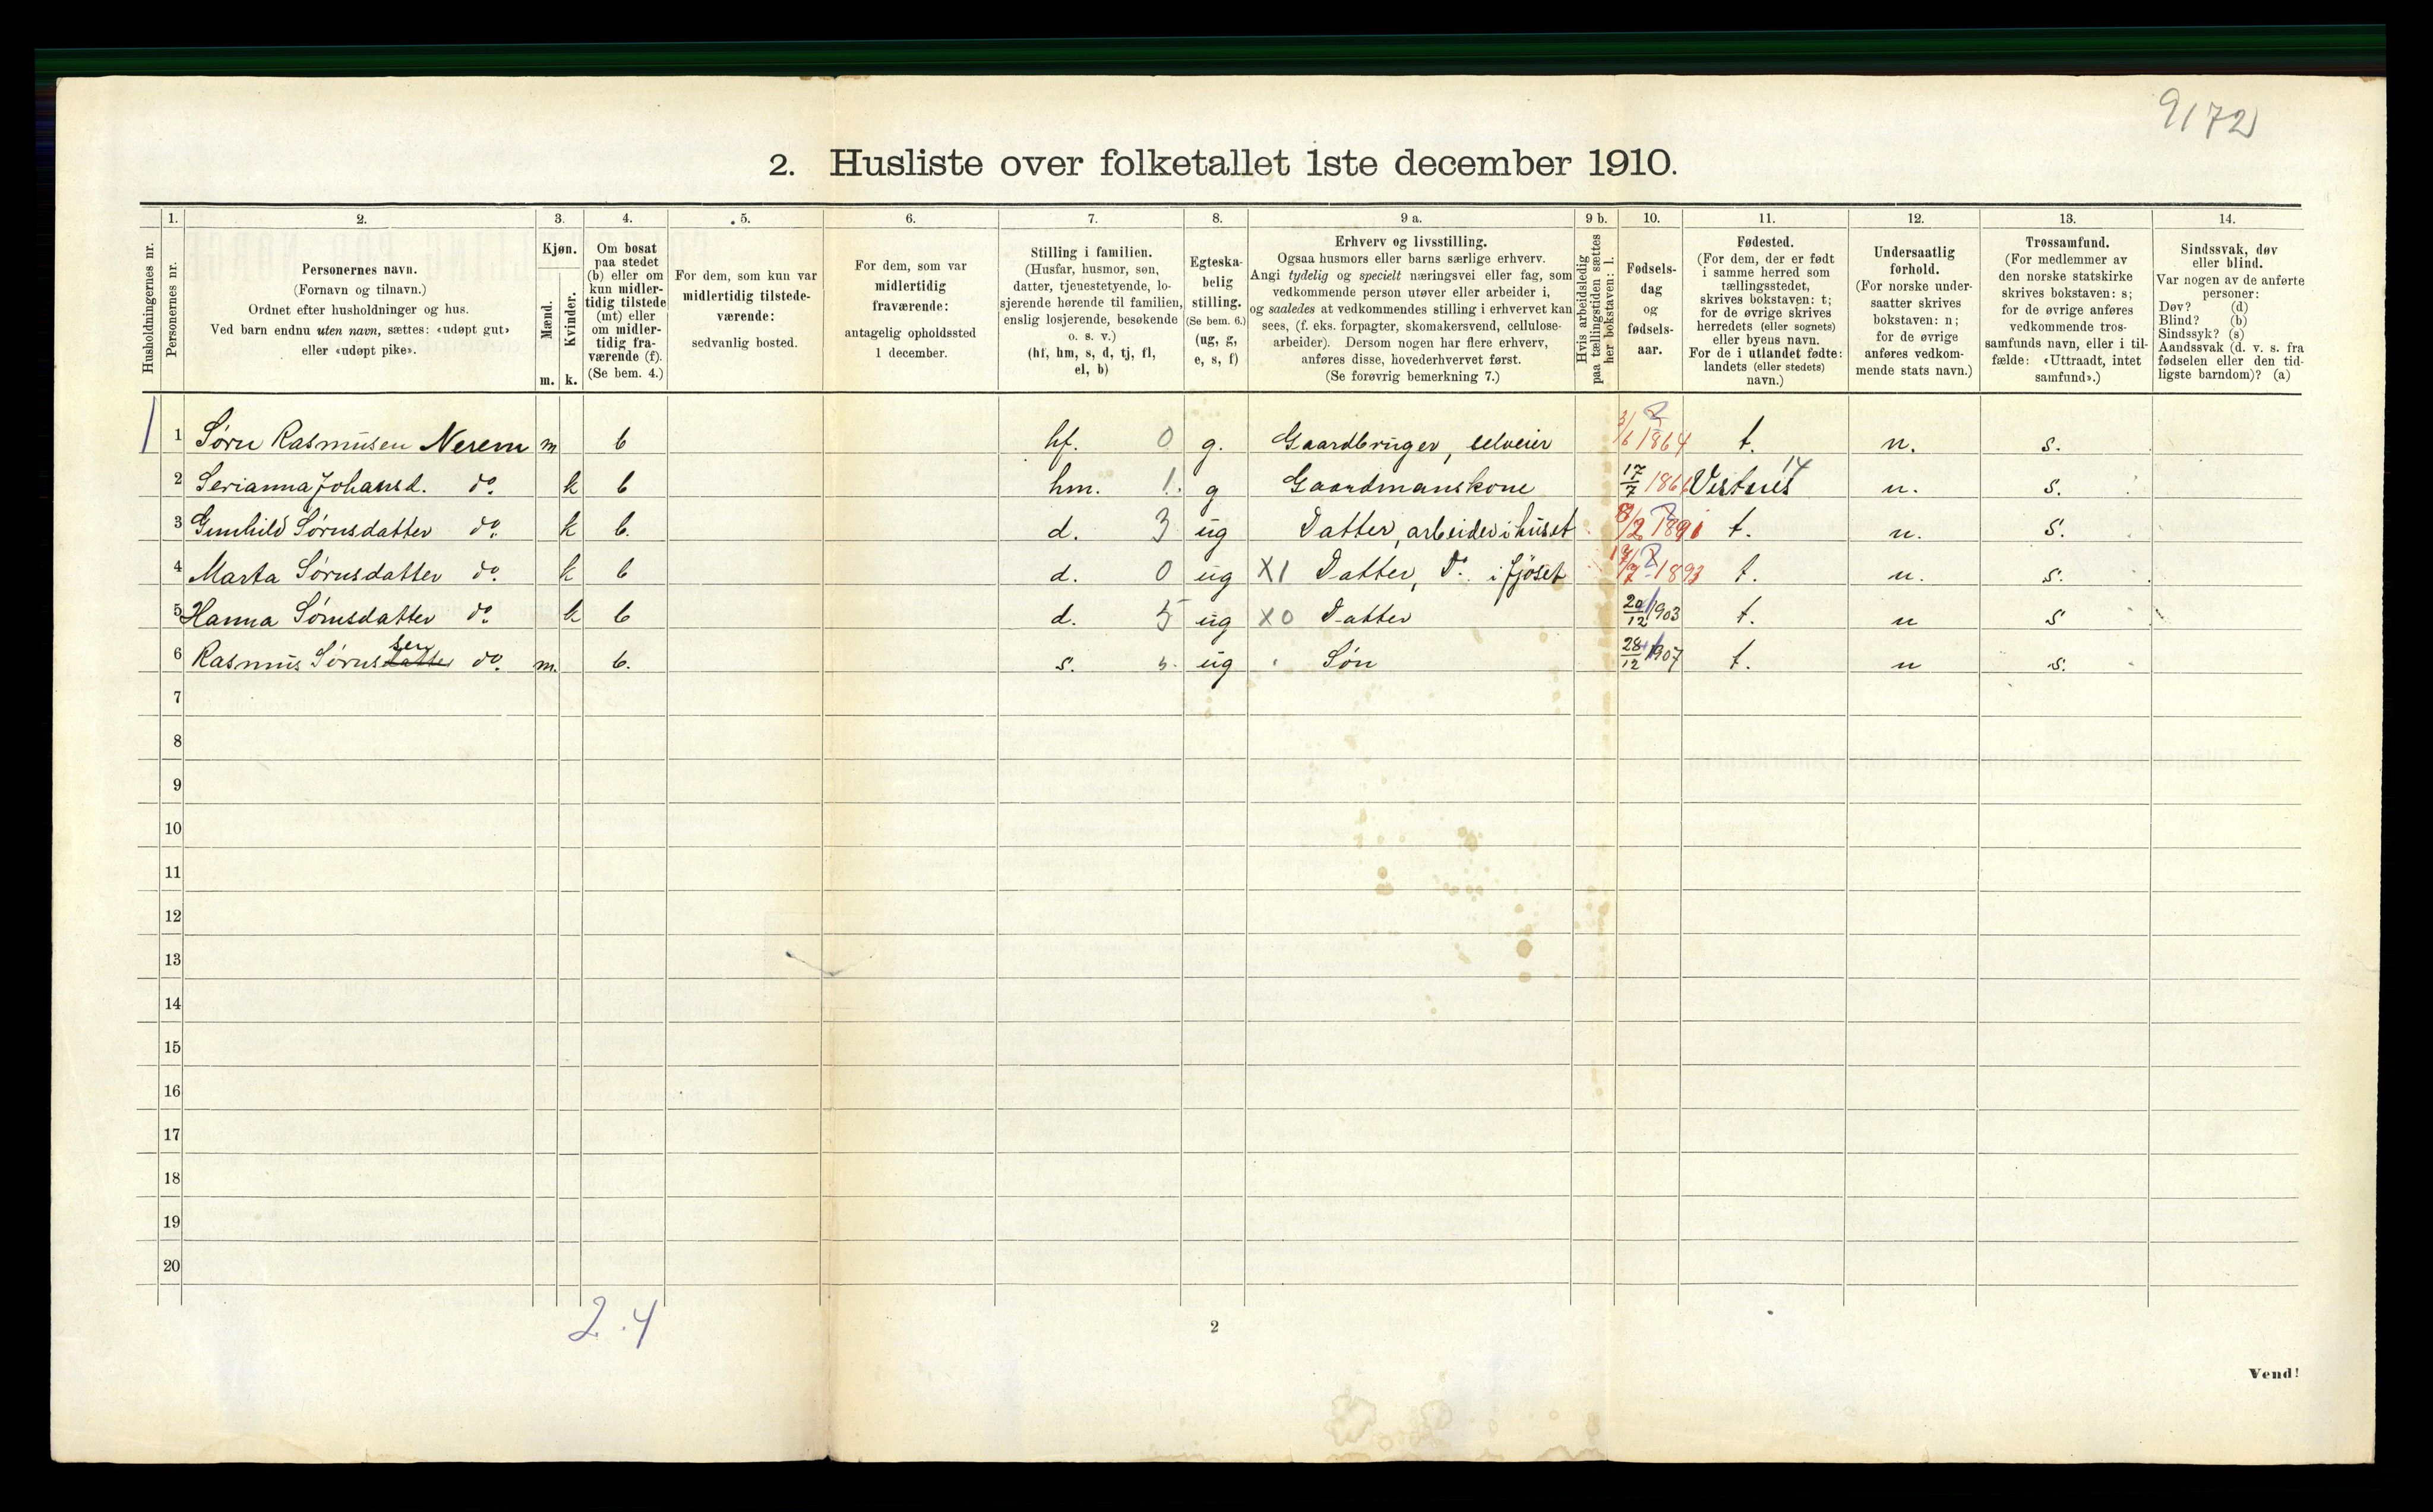 9172
2. Husliste over folketallet 1ste december 1910.
Husholdningernes nr.
1. Personernes nr.
2. Personernes navn. (Fornavn og tilnavn.) Ordnet efter husholdninger og hus. Ved barn endnu uten navn, sættes: «udøpt gut» eller «udøpt pike».
3. Kjøn. Mænd. Kvinder. m. k.
4. Om bosat paa stedet (b) eller om kun midlertidig tilstede (mt) eller om midlertidig fraværende (f). (Se bem. 4.)
5. For dem, som kun var midlertidig tilstedeværende: sedvanlig bosted.
6. For dem, som var midlertidig fraværende: antagelig opholdssted 1 december.
7. Stilling i familien. (Husfar, husmor, søn, datter, tjenestetyende, losjerende hørende til familien, enslig losjerende, besøkende o. s. v.) (hf, hm, s, d, tj, fl, el, b)
8. Egteskabelig stilling. (Se bem. 6.) (ug, g, e, s, f)
9 a. Erhverv og livsstilling. Ogsaa husmors eller barns særlige erhverv. Angi tydelig og specielt næringsvei eller fag, som vedkommende person utøver eller arbeider i, og saaledes at vedkommendes stilling i erhvervet kan sees, (f. eks. forpagter, skomakersvend, cellulosearbeider). Dersom nogen har flere erhverv, anføres disse, hovederhvervet først. (Se forøvrig bemerkning 7.)
9 b. Hvis arbeidsledig paa tællingstiden sættes her bokstaven: l.
10. Fødselsdag og fødselsaar.
11. Fødested. (For dem, der er født i samme herred som tællingsstedet, skrives bokstaven: t; for de øvrige skrives herredets (eller sognets) eller byens navn. For de i utlandet fødte: landets (eller stedets) navn.)
12. Undersaatlig forhold. (For norske undersaatter skrives bokstaven: n; for de øvrige anføres vedkommende stats navn.)
13. Trossamfund. (For medlemmer av den norske statskirke skrives bokstaven: s; for de øvrige anføres vedkommende trossamfunds navn, eller i tilfælde: «Uttraadt, intet samfund».)
14. Sindssvak, døv eller blind. Var nogen av de anførte personer: Døv? (d) Blind? (b) Sindssyk? (s) Aandssvak (d. v. s. fra fødselen eller den tidligste barndom)? (a)
1 1 Sørn Rasmusen Nerem m b hf. 0 g. Gaardbruger, selveier 3/6 1864 t. n. s.
2 Serianna Johansd. do. k b hm. 1. g Gaardmanskone 17/7 1861 Vestnes 14 n. s.
3 Gunhild Sørnsdatter do. k b. d. 3 ug Datter, arbeider i huset 8/2 1891 t. n. s.
4 Marta Sørnsdatter do. k b d. 0 ug X1 Datter, Do. i fjøset 1893 t. n. s.
5 Hanna Sørnsdatter do. k b d. 5 ug X0 Datter 20/12 1903 t. n s
6 Rasmus Sørnsdatter sen do. m. b. s. ug Søn 28/12 1907 t. n s.
7
8
9
10
11
12
13
14
15
16
17
18
19
20
2.4
2
Vend!